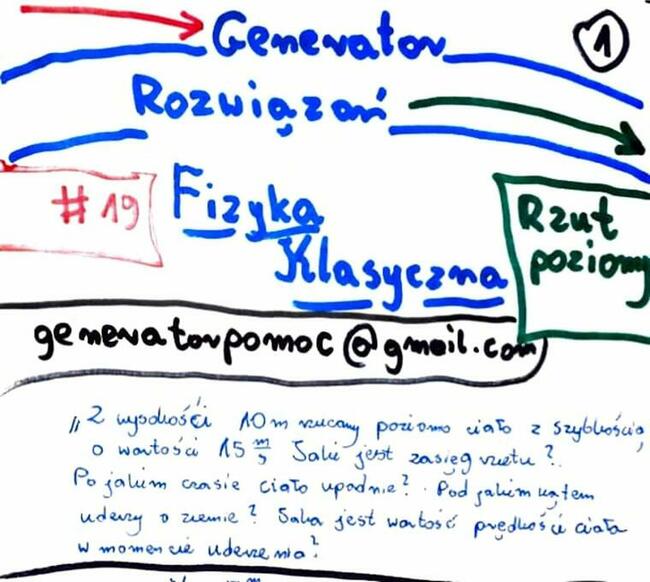 Generator
1
Rozwiązań
#19
Fizyka
Klasyczna
Rzut
poziomy
generatorpomoc@gmail.com
„Z wysokości 10m rzucamy poziomo ciało z szybkością,
o wartości 15 m/s Jaki jest zasięg rzutu?
Po jakim czasie ciało upadnie? Pod jakim kątem
uderzy o ziemie? Jaka jest wartość prędkości ciała
w momencie uderzenia?